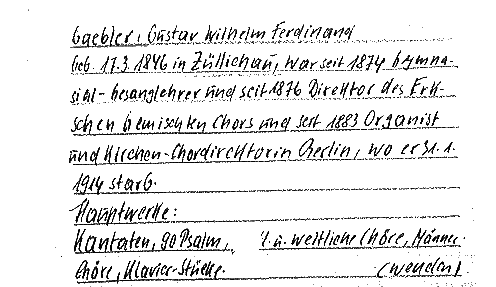 Gaebler, Gustav Wilhelm Ferdinand
Geb. 17.3. 1846 in Züllichau, war seit 1874 Gymna-
sial-Gesanglehrer und seit 1876 Direktor des Erk-
schen Gemischten Chors und seit 1883 Organist
und Kirchen-Chordirektor in Berlin, wo er 31. 1.
1914 starb.
Hauptwerke:
Kantaten, 90 Psalm, g. u. weltliche Chöre, Männer-
Chöre, Klavier-Stücke. (wenden)